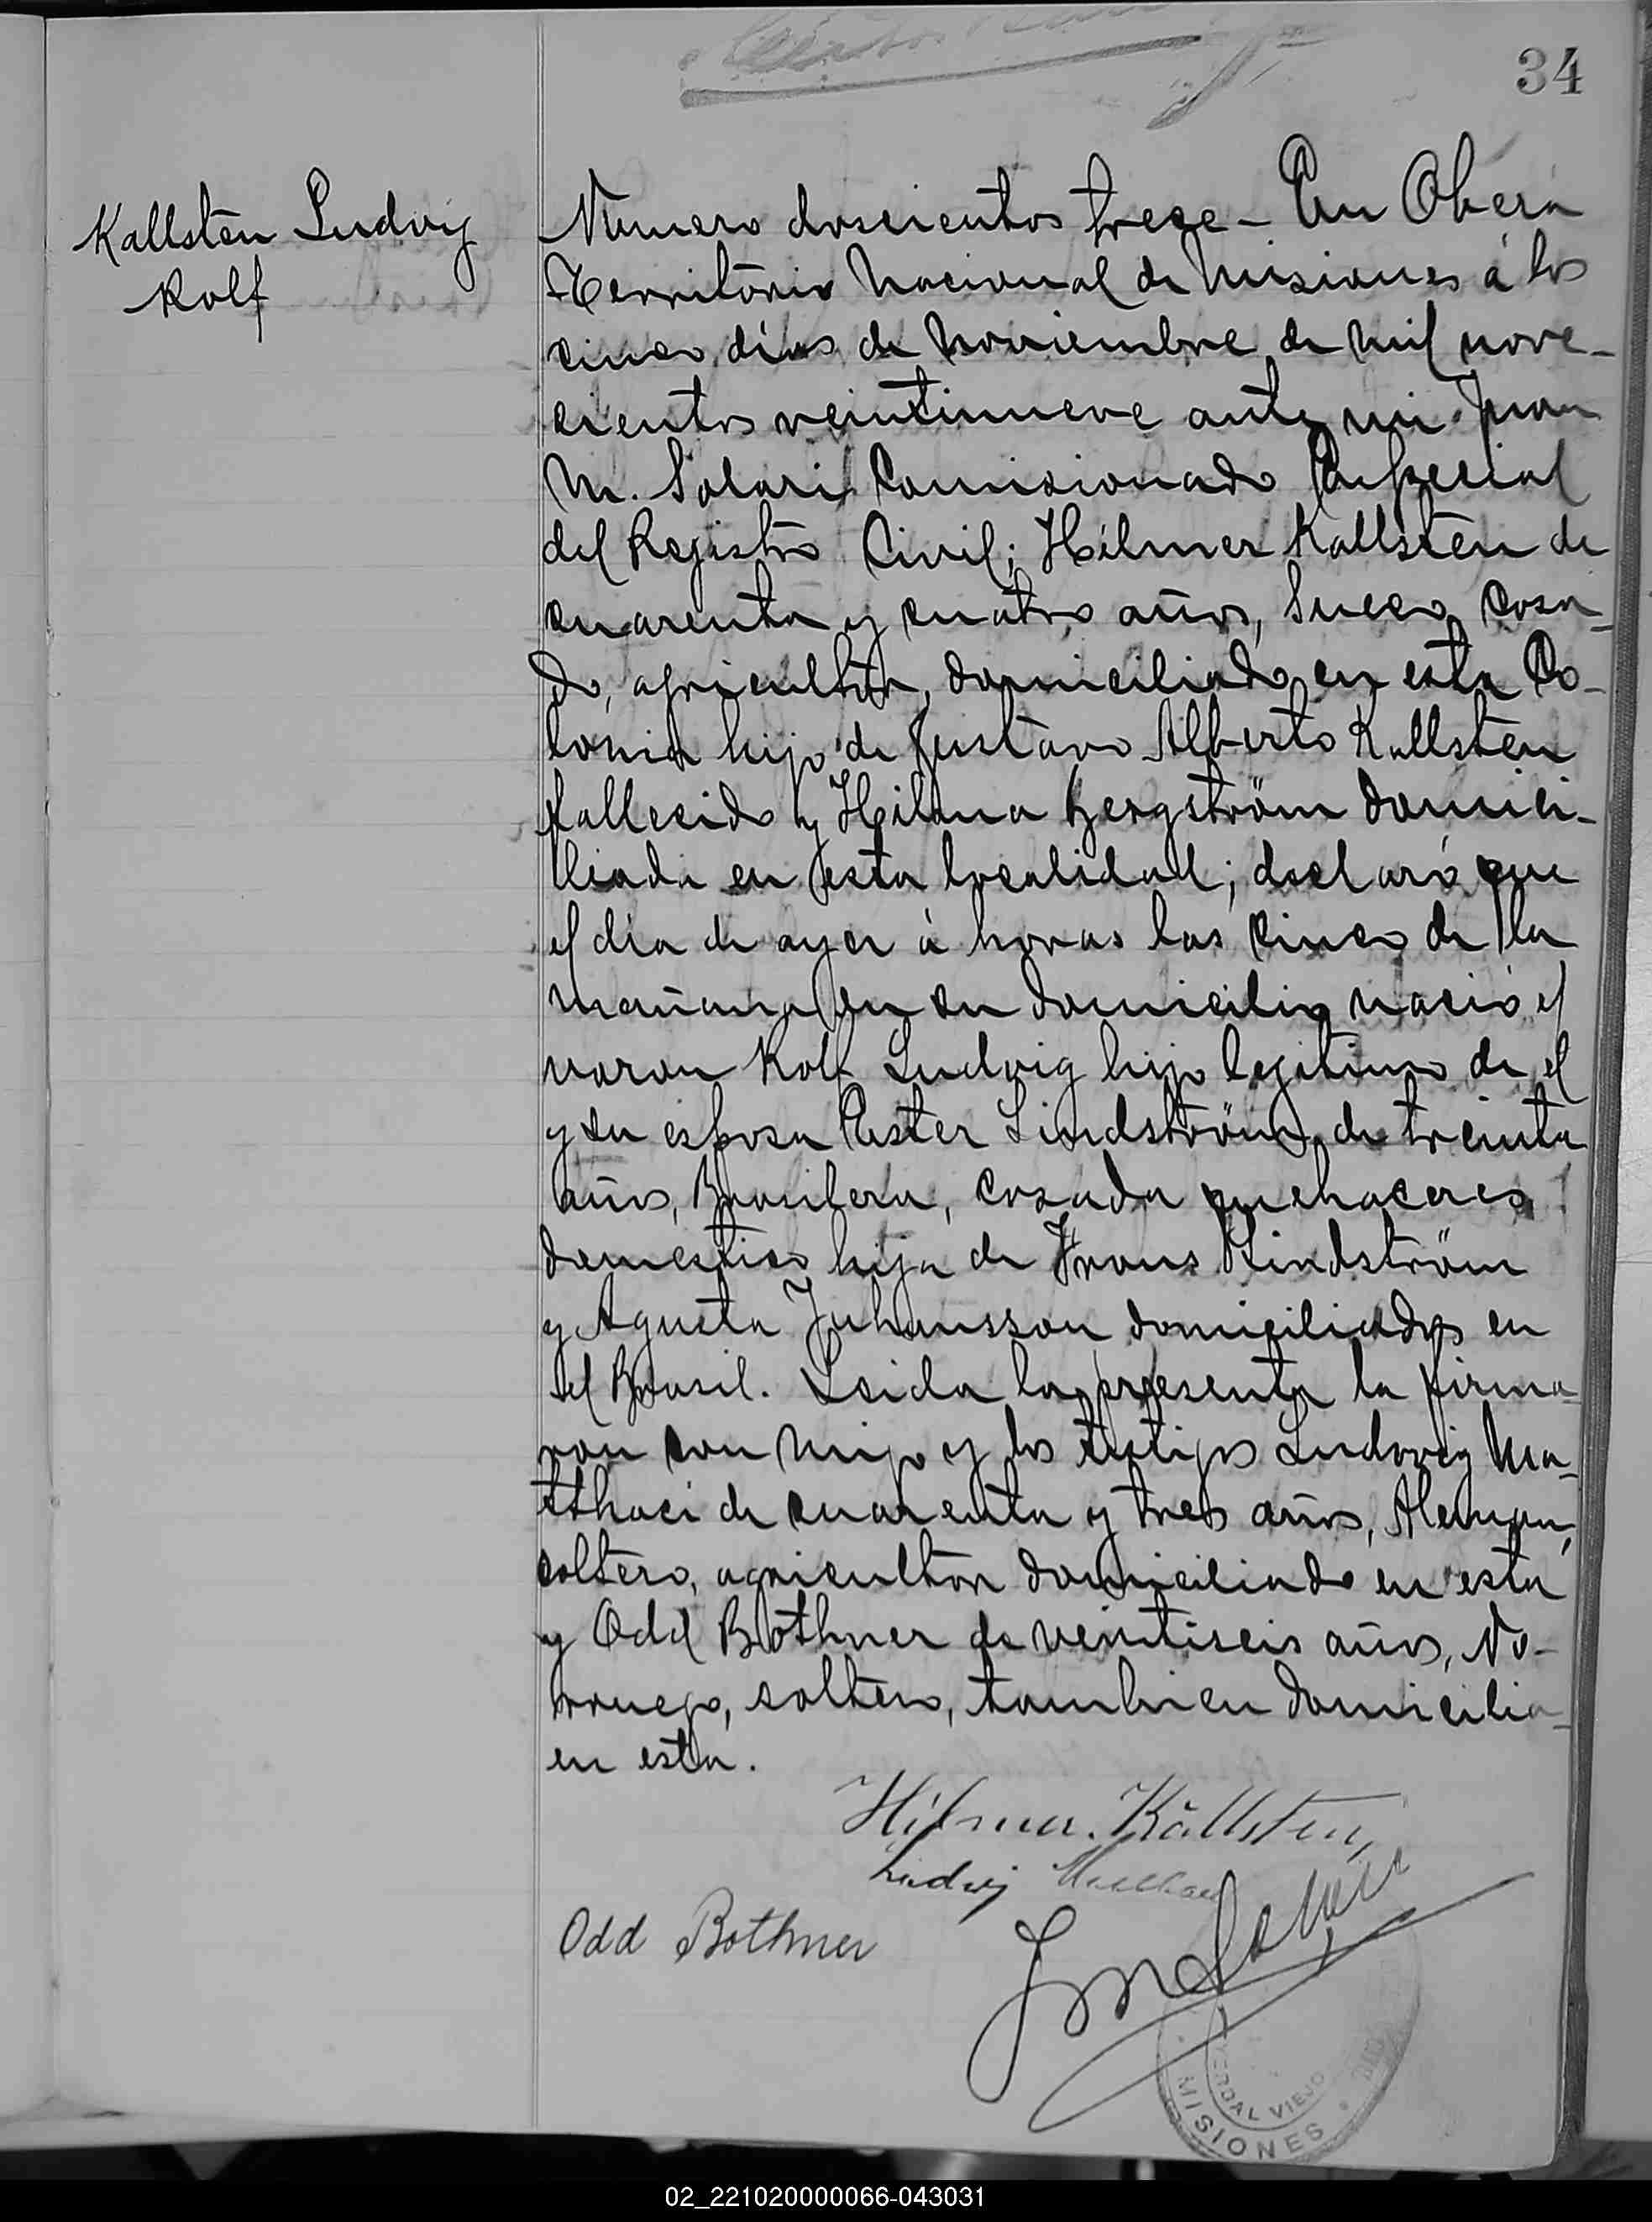 34
Kallsten Ludvig
Rolf
Numero doscientos trece - En Oberá
Territorio Nacional de Misiones á los
cinco dias de Noviembre de mil nove-
cientos veintinueve ante mi Juan
M. Solari Comisionado Especial
del Registro Civil; Hilmer Kallsten de
cuarenta y cuatro años, Sueco, Casa-
do, agricultor, domiciliado en esta Co-
lonia hijo de Gustavo Alberto Kallsten
fallecido y Hilma Bergström domici-
liada en esta localidad; declaró que
el día de ayer á horas las cinco de la
mañana en su domicilio nació el
varon Rolf Ludvig hijo legitimo de el
y su esposa Ester Lindström, de treinta
años, Brasilera, casada quehaceres
domestico hija de Frans Lindström
y Agueta Juhansson domiciliados en
el Brasil. Leida la presente la firma-
ron con migo y los testigos Ludovig Ma-
tthaei de cuarenta y tres años, Aleman,
soltero, agricultor domiciliado en esta
y Odd Bothner de veintiseis años, No-
ruego, soltero, tambien domicilia-
en esta.
Hilmer. Källsten,
Ludvig
Odd Bothner
JMSolari
YERBAL VIEJO
MISIONES
02_221020000066-043031